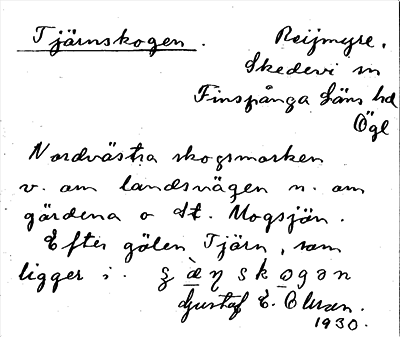 Tjärnskogen. Reijmyre.
Skedevi sn
Finspånga läns hd
Ögl
Nordvästra skogsmarken
v. om landsvägen n. om
gärdena o St. Mogsjön.
Efter gölen Tjärn, som
ligger i.
Gustaf E. Olsson.
1930.